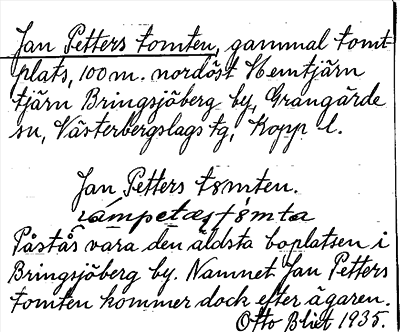 Jan Petters tomten, gammal tomt-
plats, 100 m. nordöst Hemtjärn
tjärn Bringsjöberg by, Grangärde
sn, Västerbergslags tg, Kopp l.
Jan Petters tomten.
Påstås vara den äldsta boplatsen i
Bringsjöberg by. Namnet Jan Petters
tomten kommer dock efter ägaren.
Otto Blixt 1935.